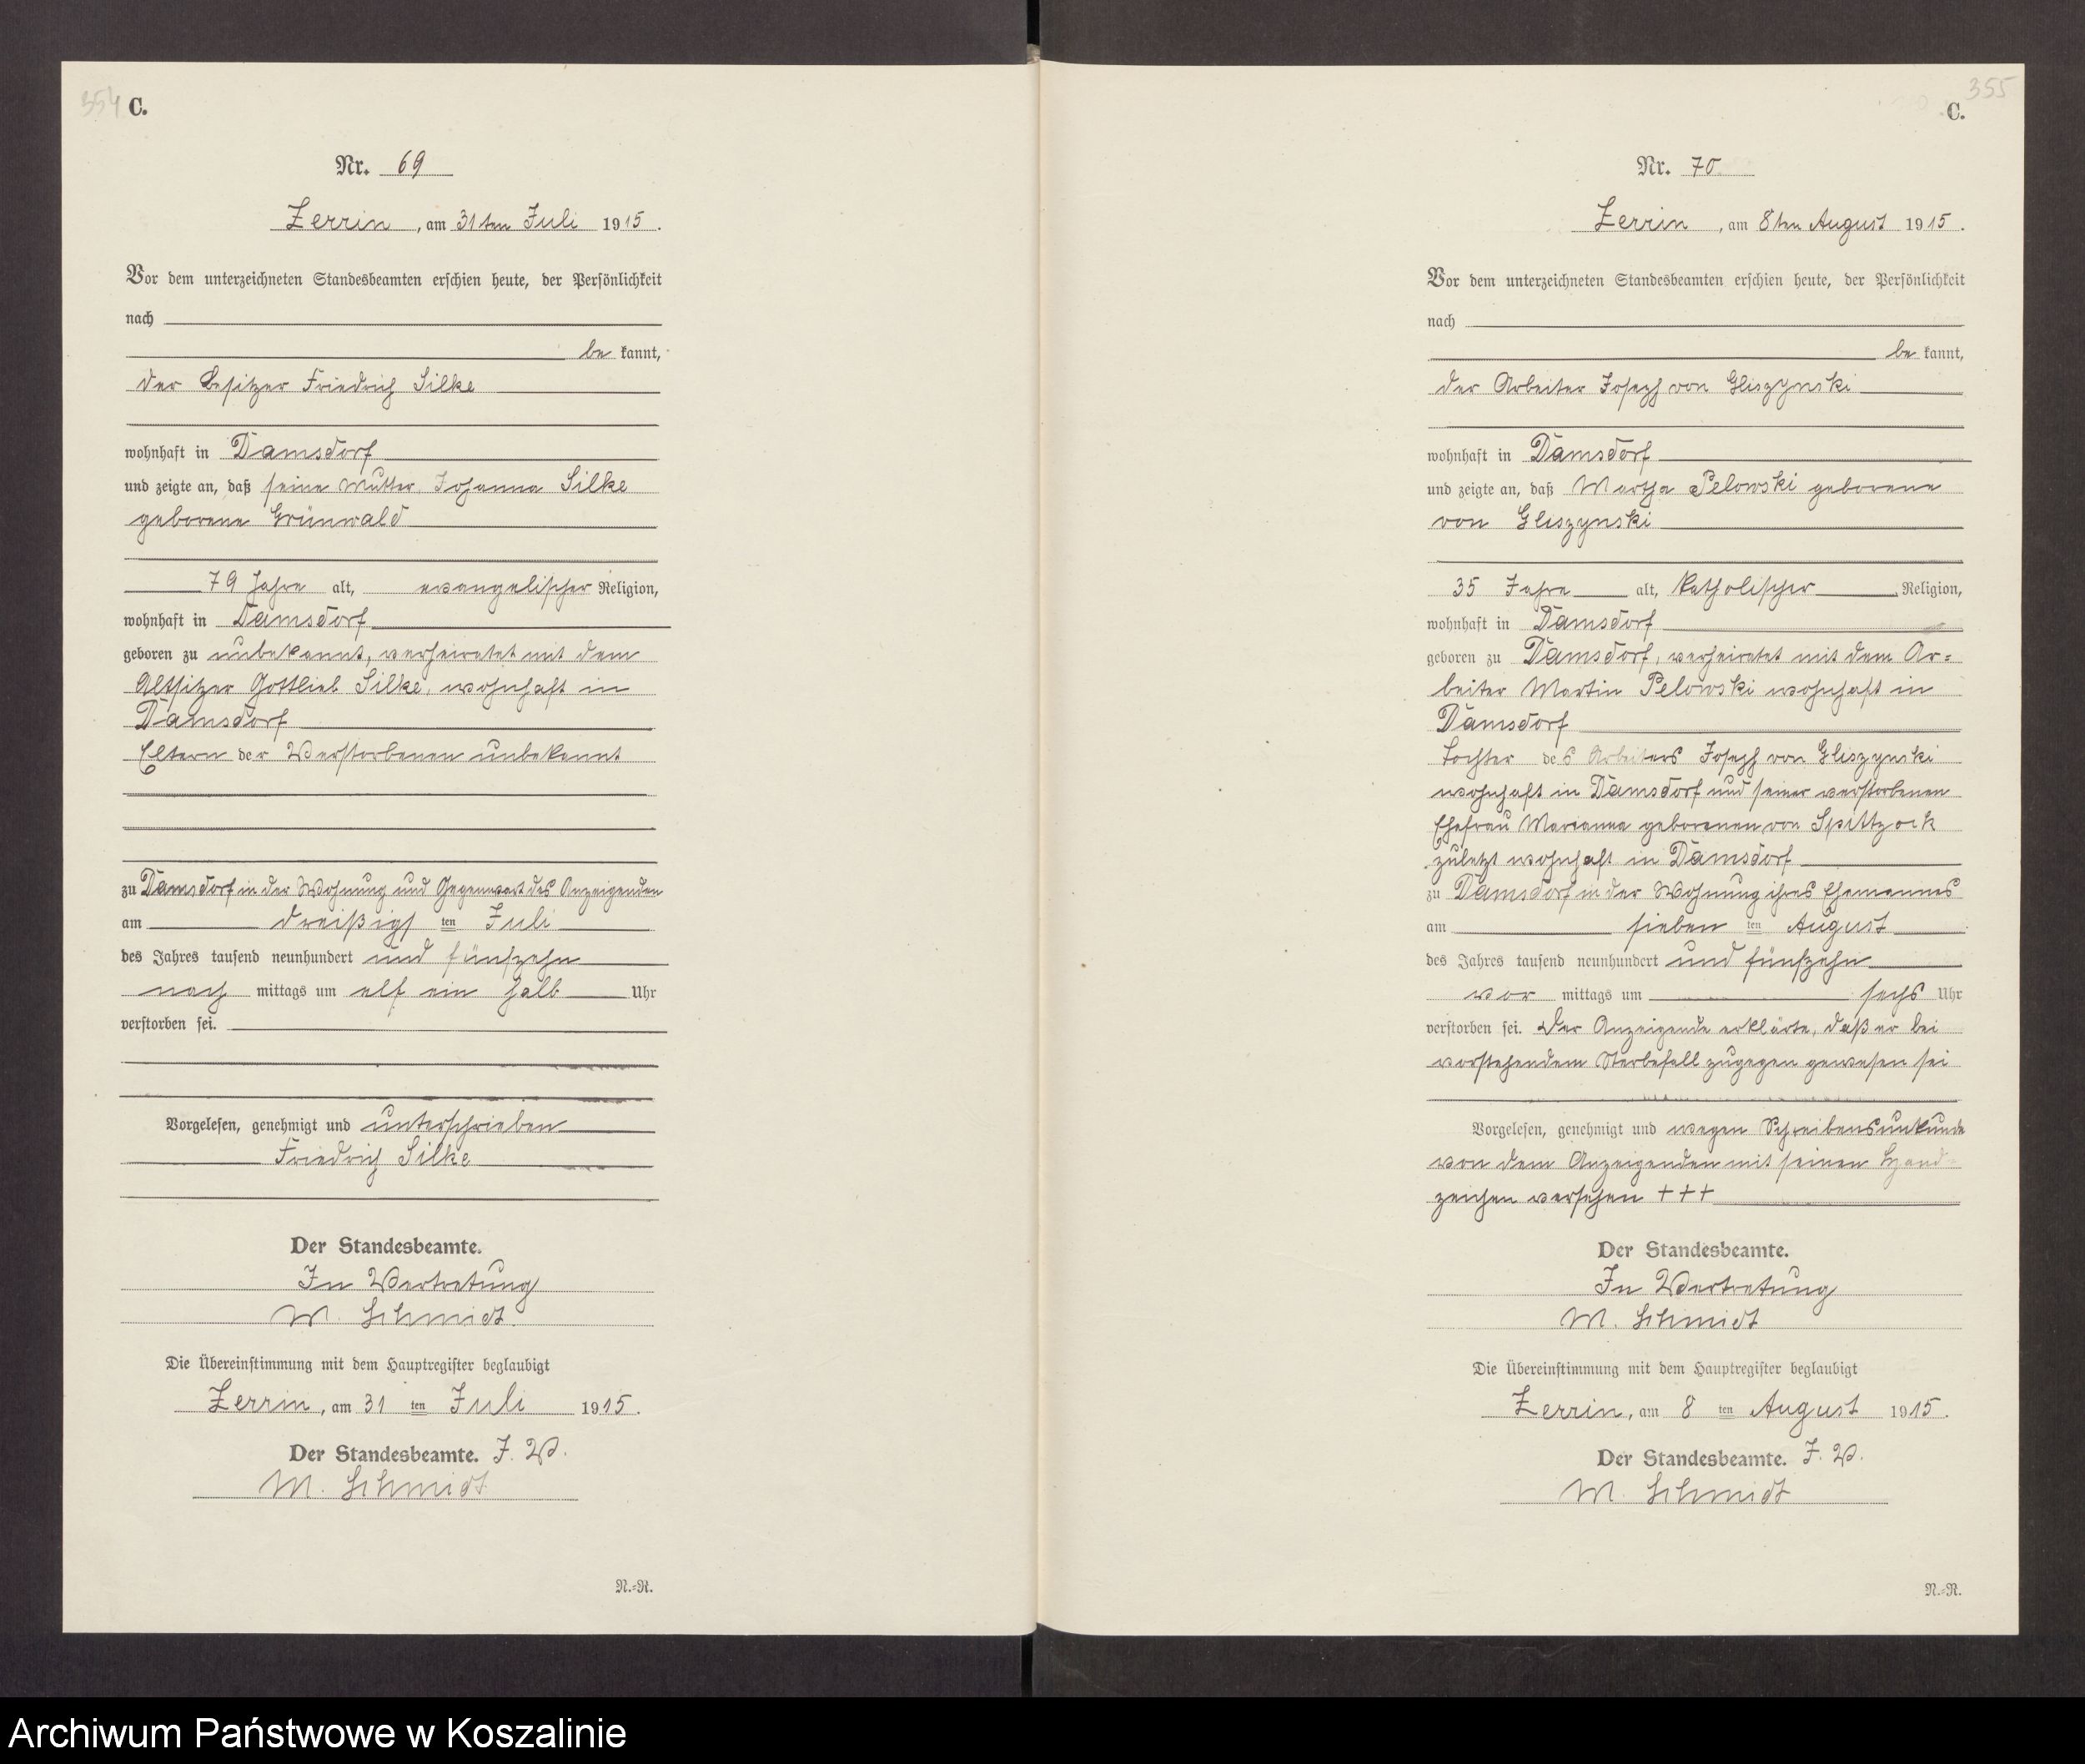 354 C.
Nr. 69
Zerrin, am 31ten Juli 1915.
Vor dem unterzeichneten Standesbeamten erschien heute, der Persönlichkeit
nach
be kannt,
der Besitzer Friedrich Silke
wohnhaft in Damsdorf
und zeigte an, daß seine Mutter, Johanna Silke
geborene Grünwald
79 Jahre alt, evangelischer Religion,
wohnhaft in Damsdorf
geboren zu unbekannt, verheiratet mit dem
Altsitzer Gottlieb Silke, wohnhaft in
Damsdorf
Eltern der Verstorbenen unbekannt
zu Damsdorf in der Wohnung und Gegenwart des Anzeigenden
am dreißigsten Juli
des Jahres tausend neunhundert und fünfzehn
nach mittags um elf ein halb Uhr
verstorben sei.
Vorgelesen, genehmigt und unterschrieben
Friedrich Silke
Der Standesbeamte.
In Vertretung
M. Schmidt.
Die Übereinstimmung mit dem Hauptregister beglaubigt
Zerrin, am 31 ten Juli 1915.
Der Standesbeamte. I. V.
M. Schmidt
N.=R.
355
C.
Nr. 70
Zerrin, am 8ten August 1915.
Vor dem unterzeichneten Standesbeamten erschien heute, der Persönlichkeit
nach
be kannt,
der Arbeiter Joseph von Gliszynski
wohnhaft in Damsdorf
und zeigte an, daß Martha Pelowski geborene
von Gliszynski
35 Jahre alt, katholischer Religion,
wohnhaft in Damsdorf
geboren zu Damsdorf, verheiratet mit dem Ar=
beiter Martin Pelowski wohnhaft in
Damsdorf
Tochter des Arbeiters Joseph von Gliszynski
wohnhaft in Damsdorf und seiner verstorbenen
Ehefrau Marianna geborenen von Spittzock
zuletzt wohnhaft in Damsdorf
zu Damsdorf in der Wohnung ihres Ehemannes
am sieben ten August
des Jahres tausend neunhundert und fünfzehn
vor mittags um sechs Uhr
verstorben sei. Der Anzeigende erklärte, daß er bei
vorstehendem Sterbefall zugegen gewesen sei
Vorgelesen, genehmigt und wegen Schreibensunkunde
von dem Anzeigenden mit seinen Hand-
zeichen versehen +++
Der Standesbeamte.
In Vertretung
M. Schmidt
Die Übereinstimmung mit dem Hauptregister beglaubigt
Zerrin, am 8 ten August 1915.
Der Standesbeamte. I. V.
M. Schmidt
N.=R.
Archiwum Państwowe w Koszalinie